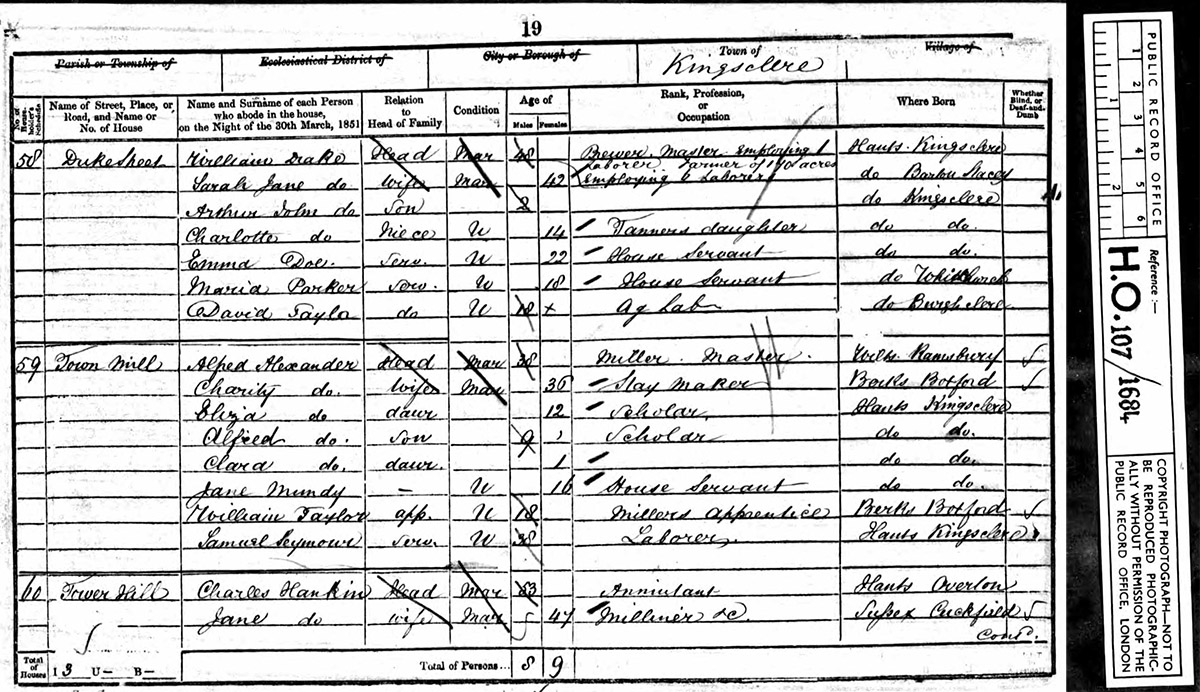 19
Parish or Township of Ecclesiastical District of City or Borough of Town of Village of
Kingsclere
No. of House-holder's Schedule Name of Street, Place, or Road, and Name or No. of House Name and Surname of each Person who abode in the house, on the Night of the 30th March, 1851 Relation to Head of Family Condition Age of Males Females Rank, Profession, or Occupation Where Born Whether Blind, or Deaf-and-Dumb
58 Duke Street William Drake Head Mar 48 Brewer Master employing 1 Laborer Farmer of acres Hants Kingsclere
Sarah Jane do wife Mar 42 employing 6 Laborers do Barton Stacey
Arthur John do Son 8 do Kingsclere
Charlotte do Niece U 14 Tanners daughter do do.
Emma Doe. Serv. U 22 House Servant do do.
Maria Parker Serv. U 18 House Servant do Whitchurch
David Taylo do U 18 x Ag Lab do Burghclere
59 Town Mill Alfred Alexander Head Mar 38 Miller. Master. Wilts Ramsbury
Charity do. Wife Mar 36 Stay maker Berks Boxford
Eliza do daur 12 Scholar Hants Kingsclere
Alfred do. Son 9 Scholar do do.
Clara do. daur. 1 do do.
Jane Mundy – U 16 House Servant do do.
William Taylor app. U 18 Millers Apprentice Berks Boxford
Samuel Seymour Serv. U 38 Laborer Hants Kingsclere
60 Tower Hill Charles Hankin Head Mar 53 Annuitant Hants Overton
Jane do wife Mar 47 Milliner &c. Sussex Cuckfield
Cond.
Total of Houses I 3 U– B– Total of Persons... 8 9
PUBLIC RECORD OFFICE
1 2 3 4 5 6
1 2
Reference :-
H.O. 107/1684
COPYRIGHT PHOTOGRAPH—NOT TO BE REPRODUCED PHOTOGRAPHICALLY WITHOUT PERMISSION OF THE PUBLIC RECORD OFFICE, LONDON